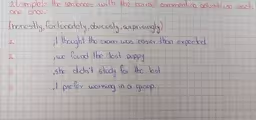 2. Complete the sentences with the correct comment adverb. Use each
one once.
(honestly, fortunately, obviously, surprisingly)
1. , I thought the exam was easier than expected
2. , we found the lost puppy
3. , she didn't study for the test
4. , I prefer working in a group.